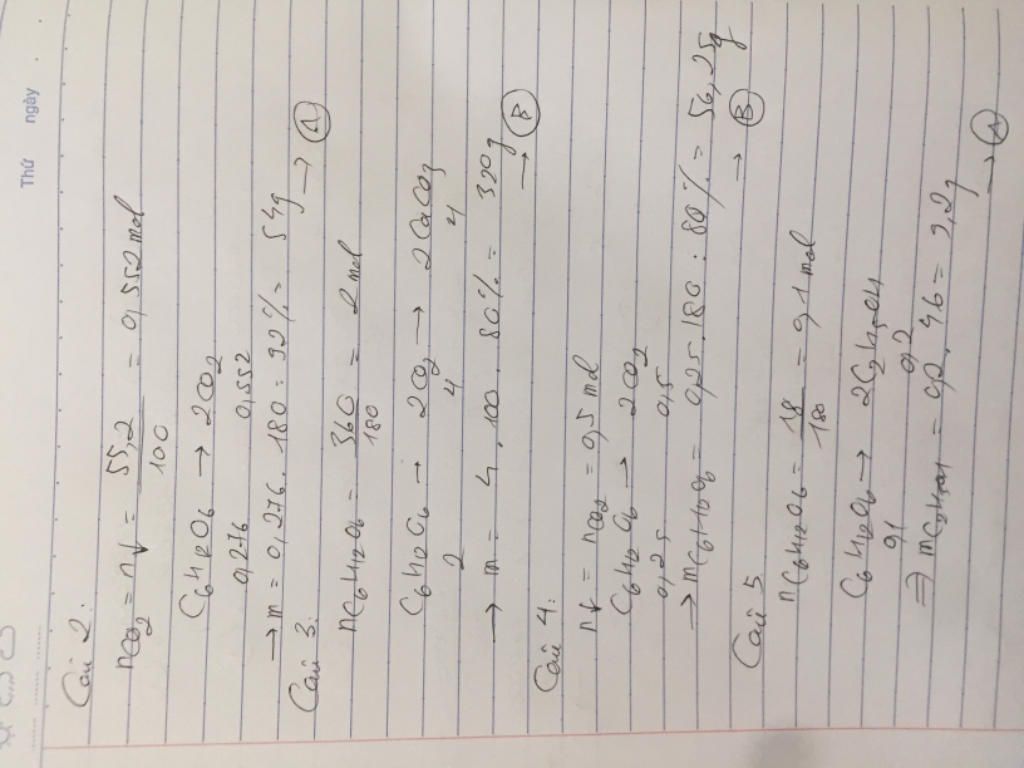 Thứ ngày
Câu 2:
nCO2 = n↓ = 55,2/100 = 0,552 mol
C6H12O6 → 2CO2
0,276 0,552
→ m = 0,276 . 180 : 92% = 54g → Ⓐ
Câu 3:
nC6H12O6 = 360/180 = 2 mol
C6H12O6 → 2CO2 → 2CaCO3
2 4 4
→ m = 4 . 100 . 80% = 320g
→ Ⓑ
Câu 4:
n↓ = nCO2 = 0,5 mol
C6H12O6 → 2CO2
0,25 0,5
→ mC6H12O6 = 0,25 . 180 : 80% = 56,25g
→ Ⓑ
Câu 5
nC6H12O6 = 18/180 = 0,1 mol
C6H12O6 → 2C2H5OH
0,1 0,2
⇒ mC2H5OH = 0,2 . 46 = 9,2g
→ Ⓐ